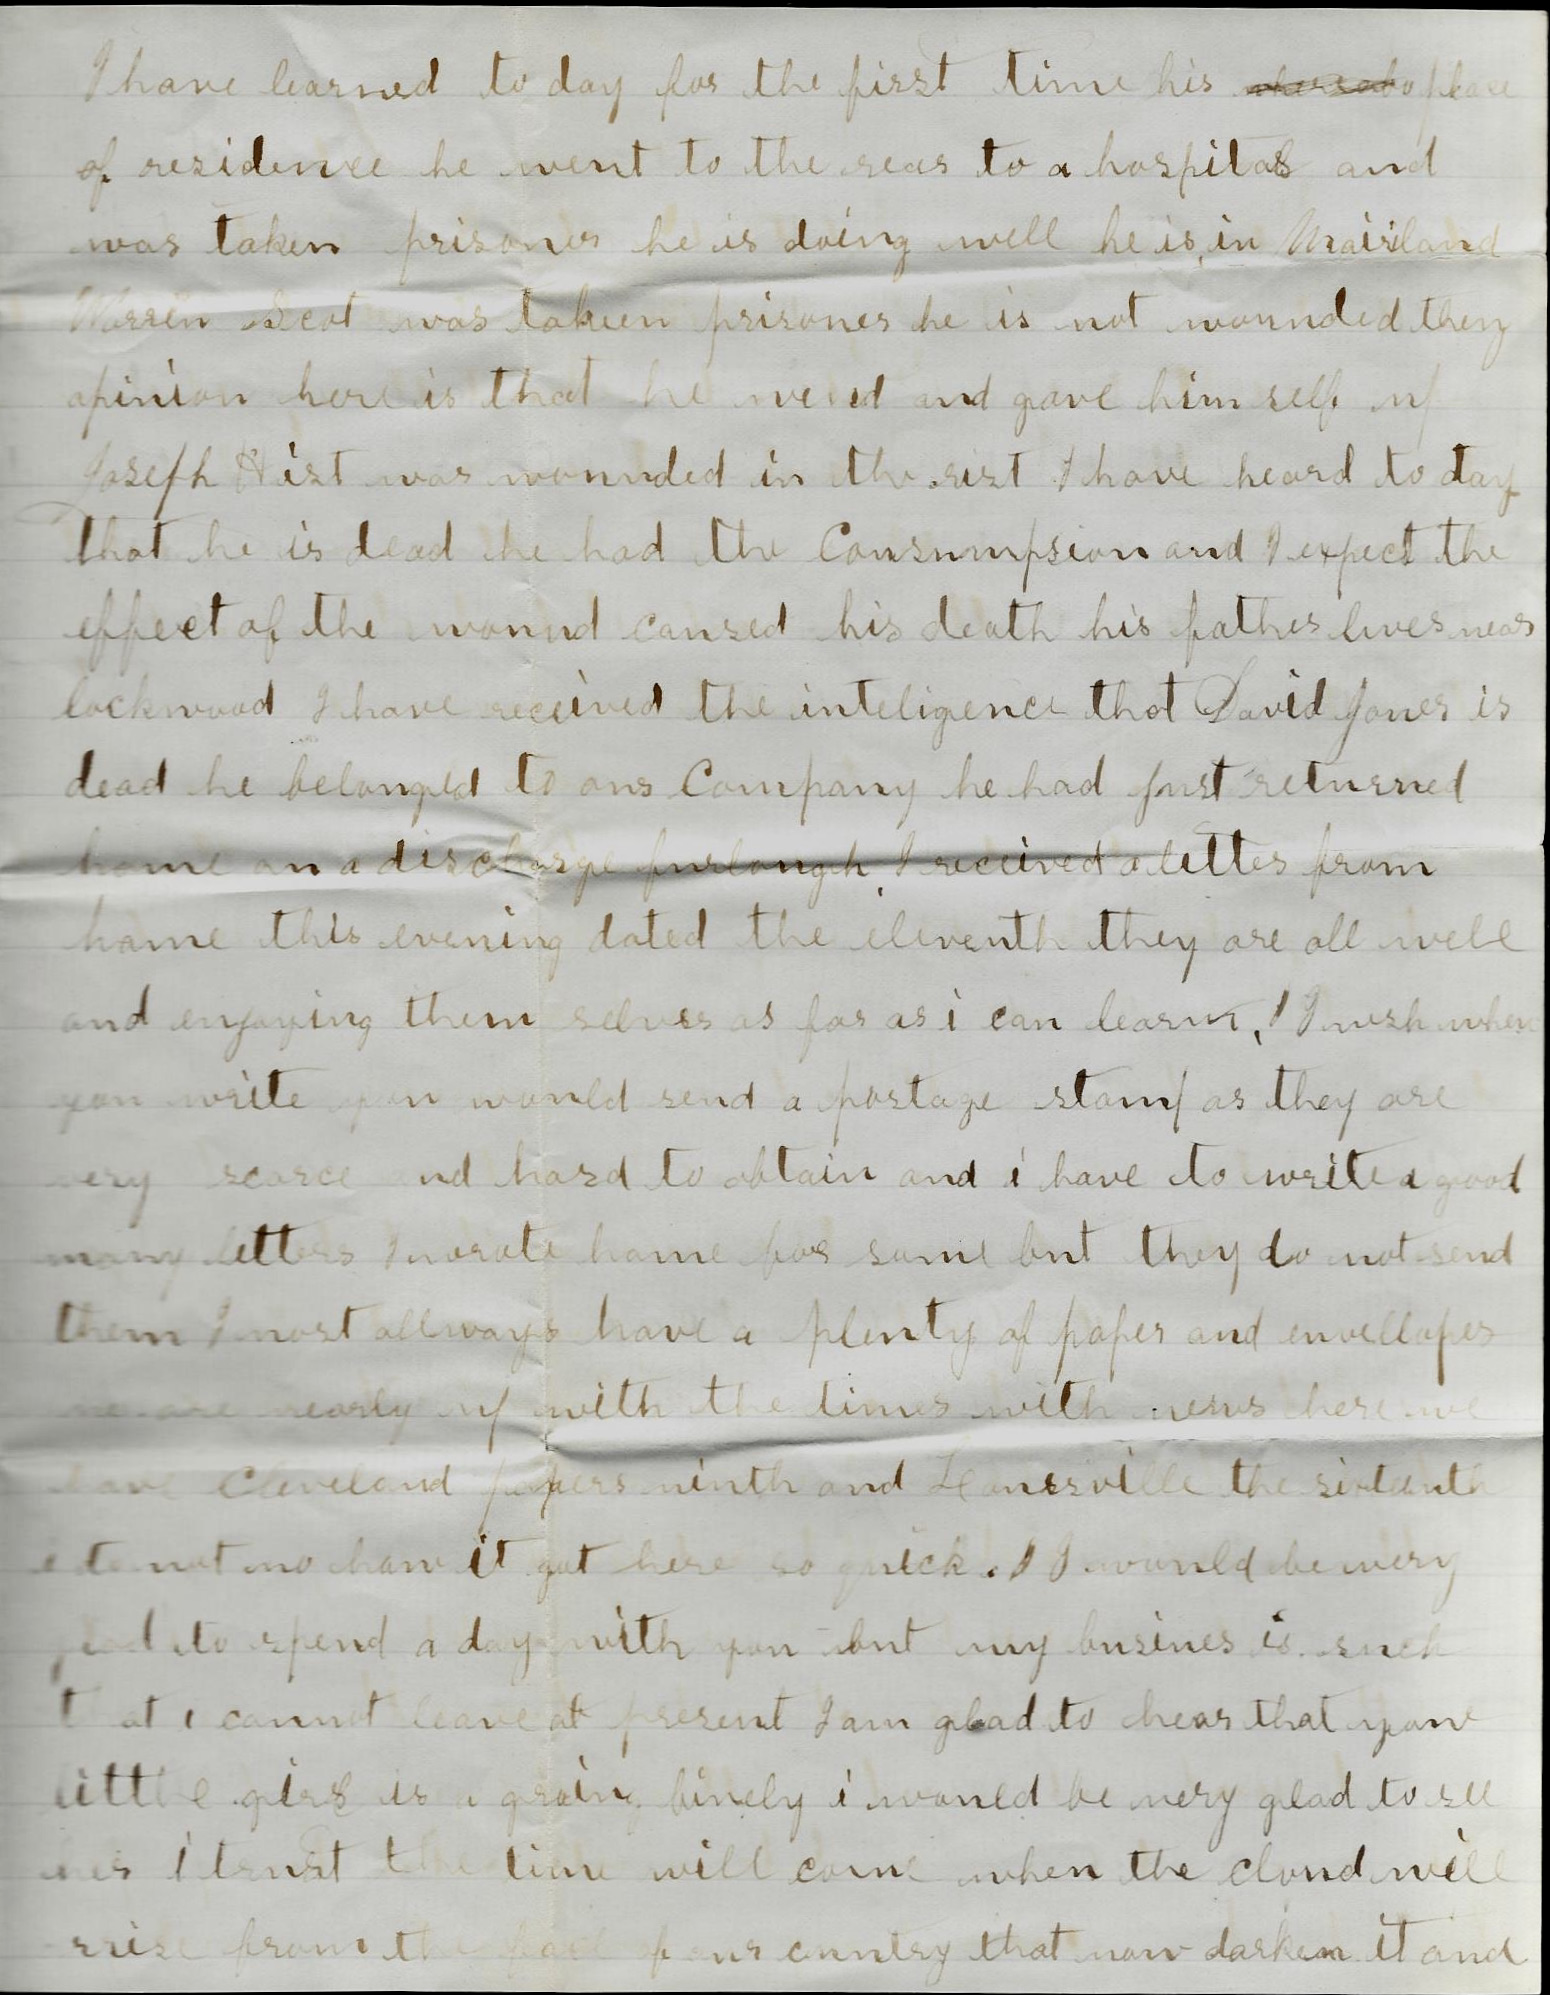 I have learned to day for the first time his whereabo place
of residence he went to the rear to a hospital and
was taken prisoner he is doing well he is in Mairiland
Werren Scot was takeen prisoner he is not wounnded they
opinion here is that he and gave him self up
Joseph Hist was wounnded in the rist I have heard to day
that he is dead he had the Consumpsion and I expect the
effect of the wound caused his death his father lives near
lockwood I have received the inteligence that David Jones is
dead he belonged to our Company he had just returned
home on a discharge furlough I received a letter from
home this evening dated the eleventh they are all well
and enjoying them selves as far as i can learn, I I wish when
you write you would send a postage stamp as they are
very scarce and hard to obtain and i have to write a good
many letters I wrote home for some but they do not send
them I most allways have a plenty of paper and envellopes
we are nearly up with the times with news here we
have Cleveland papers ninth and the sixteenth
i do not no how it got here so quick. I I would be very
glad to spend a day with you but my busines is such
that i cannot leave at present I am glad to hear that your
little girl is a groing finely i would be very glad to see
her I trust the time will come when the cloud will
rrise from the face of our cuntry that now darken it and